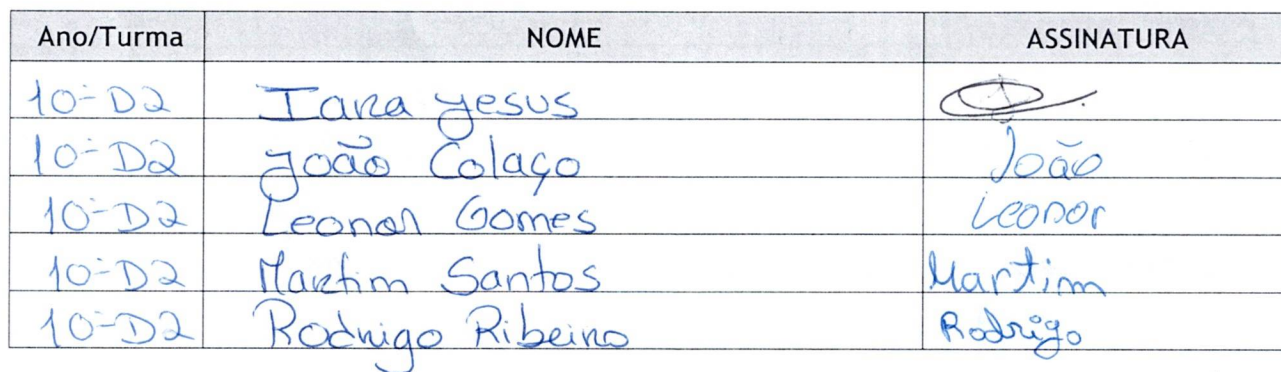 Ano/Turma NOME ASSINATURA
10º D2 Iara Jesus
10º D2 João Colaço João
10º D2 Leonor Gomes Leonor
10º D2 Martim Santos Martim
10º D2 Rodrigo Ribeiro Rodrigo